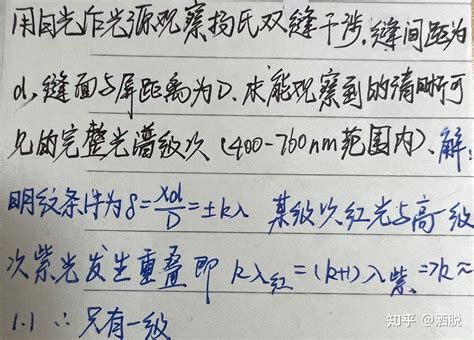 用白光作光源观察杨氏双缝干涉.缝间距为
d,缝面与屏距离为D.求能观察到的清晰可
见的完整光谱级次(400-760nm范围内).解:
明纹条件为δ=xd/D=±kλ 某级次红光与高一级
次紫光发生重叠即 kλ红=(k+1)λ紫.⇒k≈
1.1 ∴只有一级
知乎 @洒脱